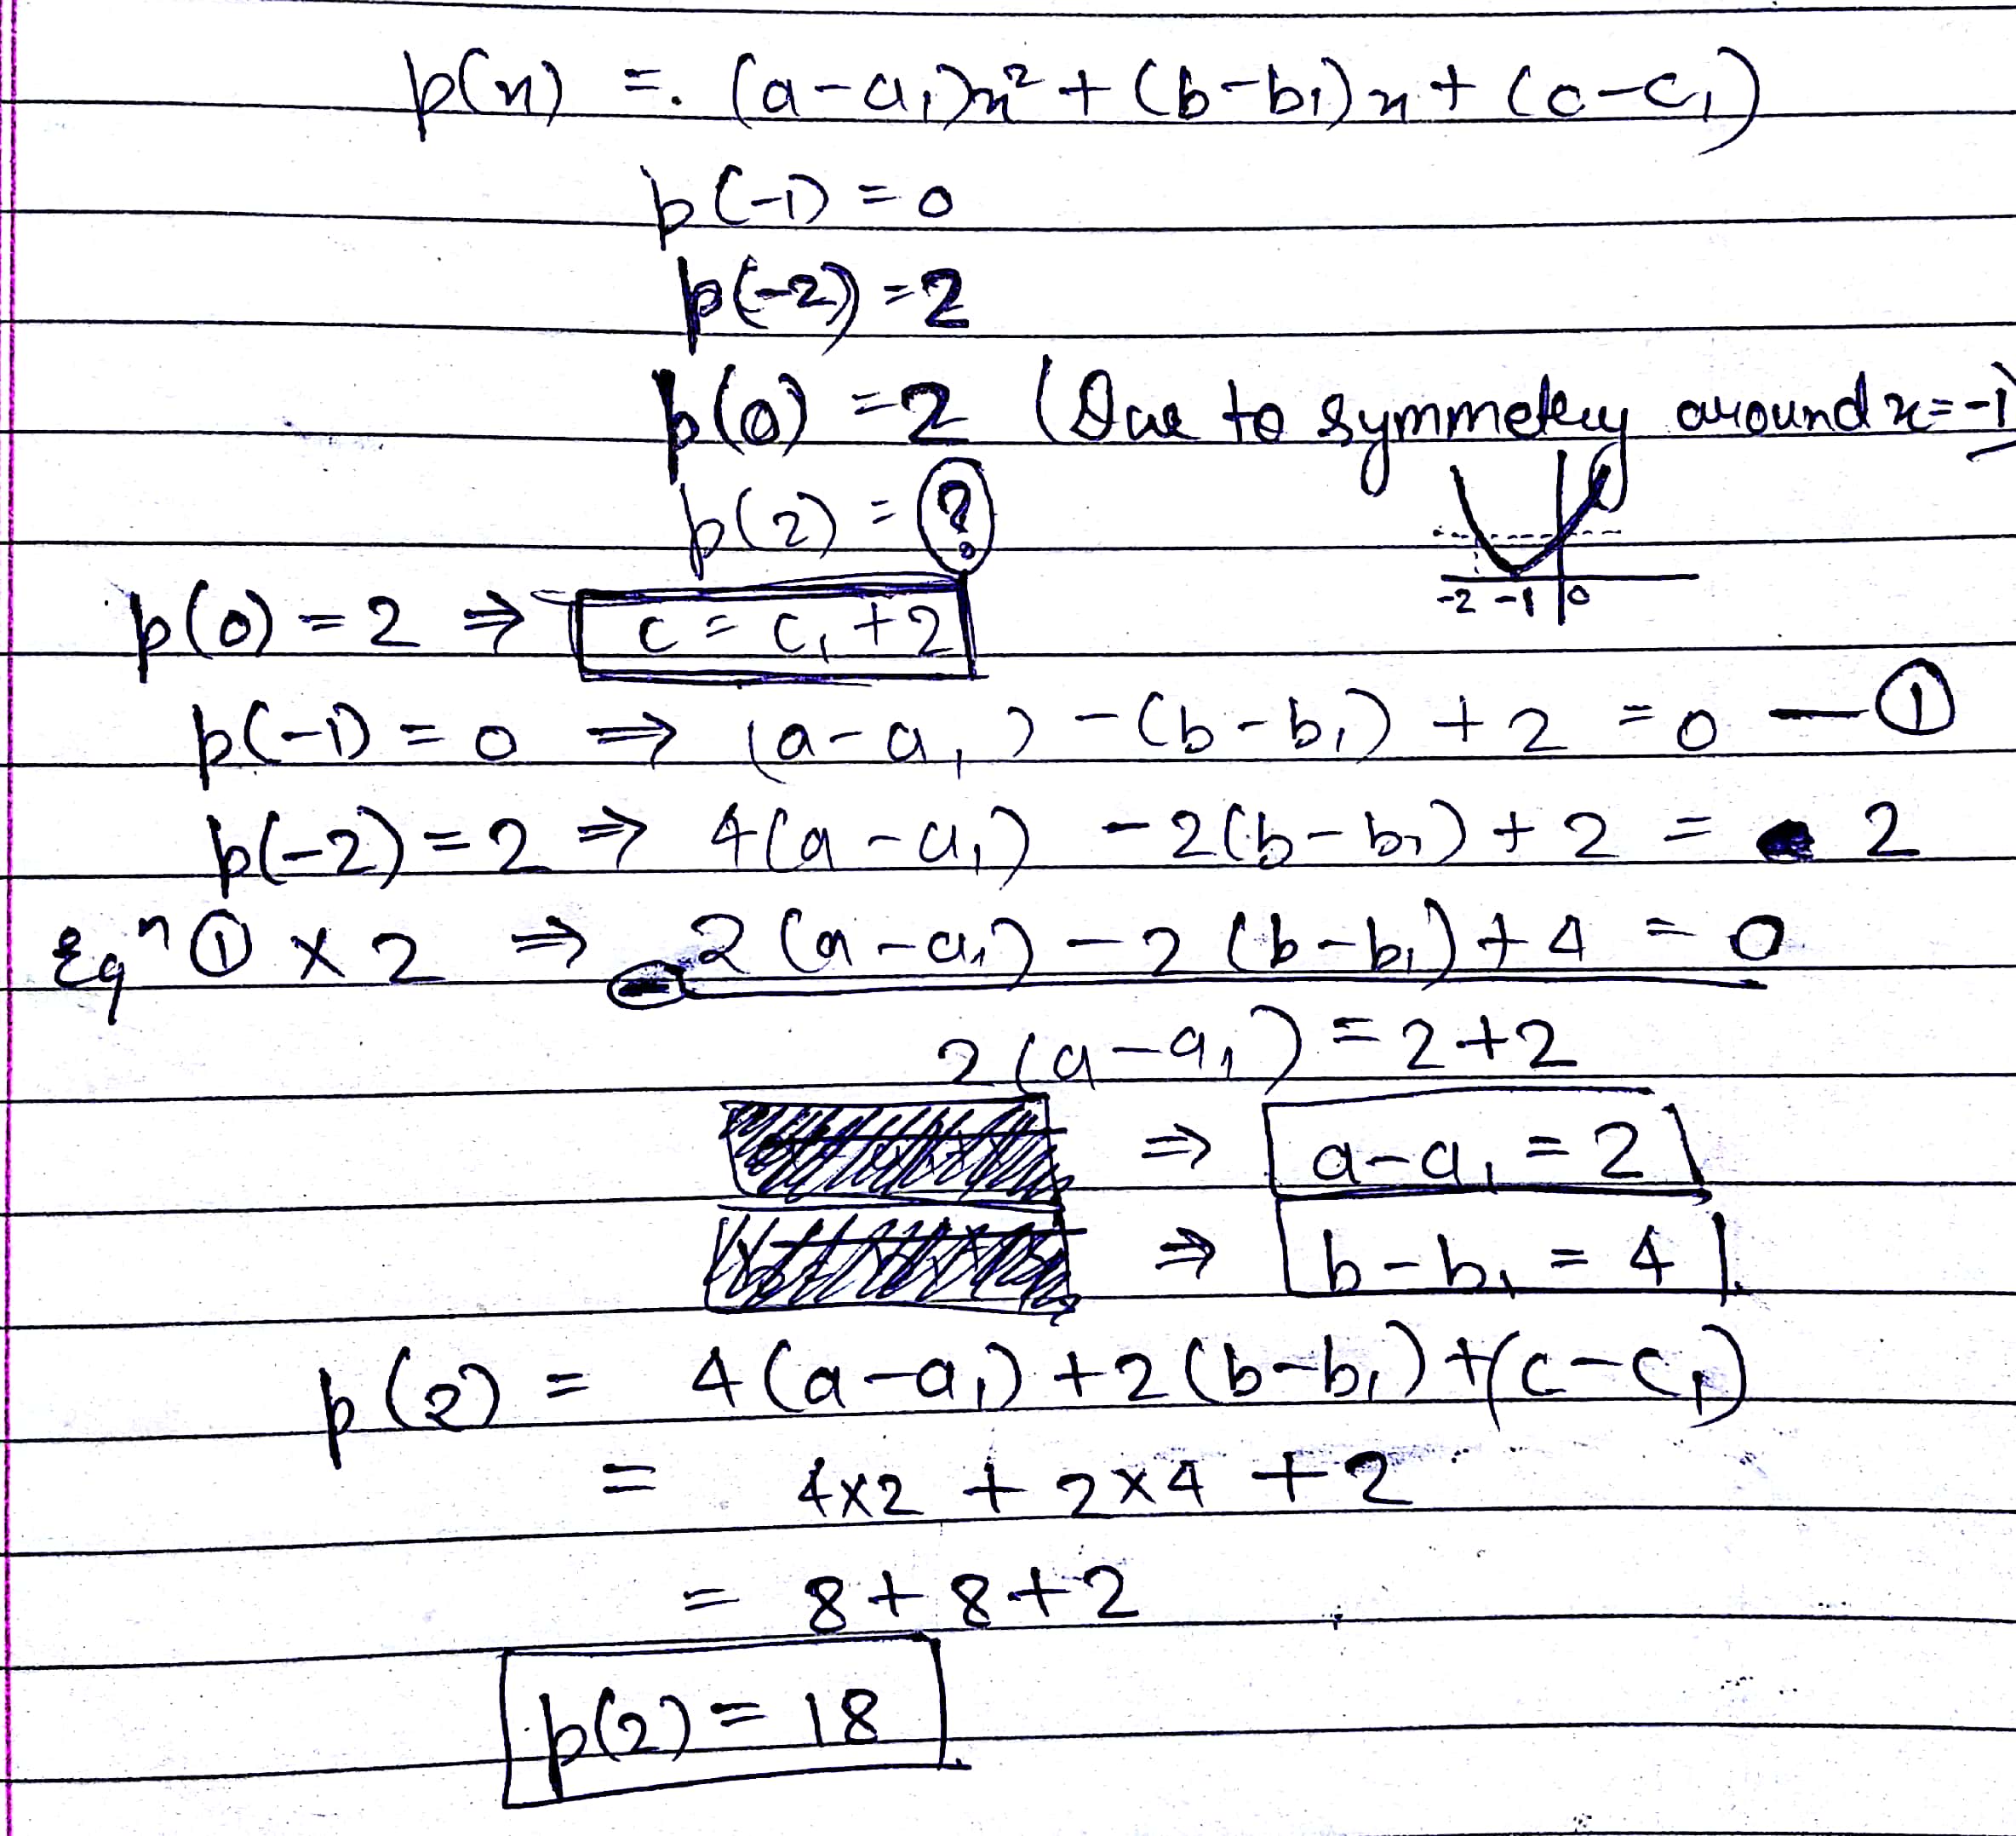 p(x) =. (a-a₁)x² + (b-b₁)x + (c-c₁)
p(-1) = 0
p(-2) = 2
p(0) = 2 (Due to symmetry around x=-1)
p(2) = ?
-2 -1 0
p(0) = 2 ⇒ c = c₁ + 2
p(-1) = 0 ⇒ (a-a₁) - (b-b₁) + 2 = 0 — ①
p(-2) = 2 ⇒ 4(a-a₁) - 2(b-b₁) + 2 = 2
Eqⁿ ① × 2 ⇒ 2(a-a₁) - 2(b-b₁) + 4 = 0
2(a-a₁) = 2+2
⇒ a-a₁ = 2
⇒ b-b₁ = 4
p(2) = 4(a-a₁) + 2(b-b₁) + (c-c₁)
= 4×2 + 2×4 + 2
= 8 + 8 + 2
p(2) = 18